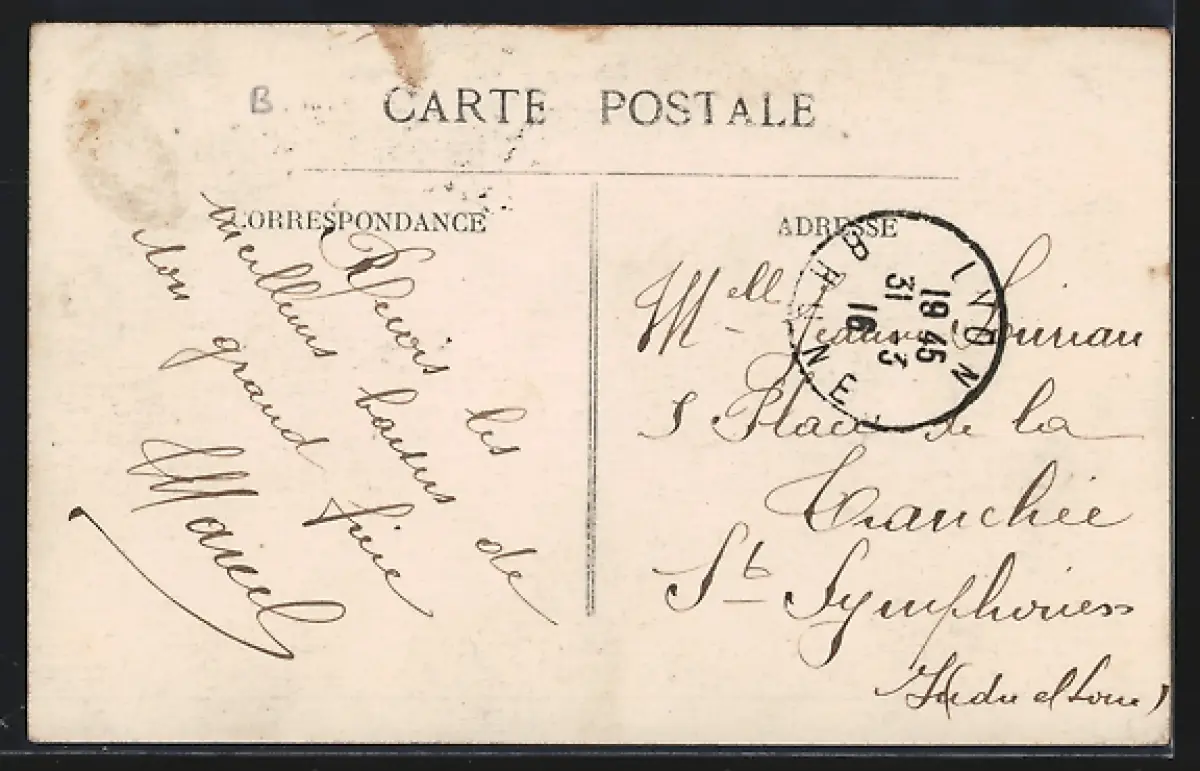 B
CARTE POSTALE
CORRESPONDANCE
Reçois les
meilleurs baisers de
ton grand frère
Marcel
ADRESSE
Mell Jeanne
5 Place de la
Tranchée
St Symphorien
(Indre et Loire)
GIVORS
19 45
31 3
16
RHONE